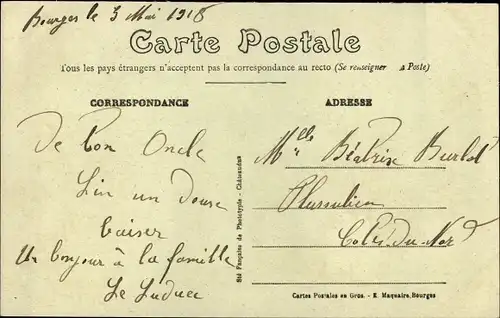 Bourges le 3 Mai 1918
Carte Postale
Tous les pays étrangers n'acceptent pas la correspondance au recto (Se renseigner à la Poste)
CORRESPONDANCE
De bon Oncle
un doux
baiser
Un bonjour à la famille
Le Luduec
Sté Française de Phototypie - Châteaudun
ADRESSE
Mlle Béatrix Burlot
Plussulien
Cotes-du-Nord
Cartes Postales en Gros. - E. Maquaire, Bourges